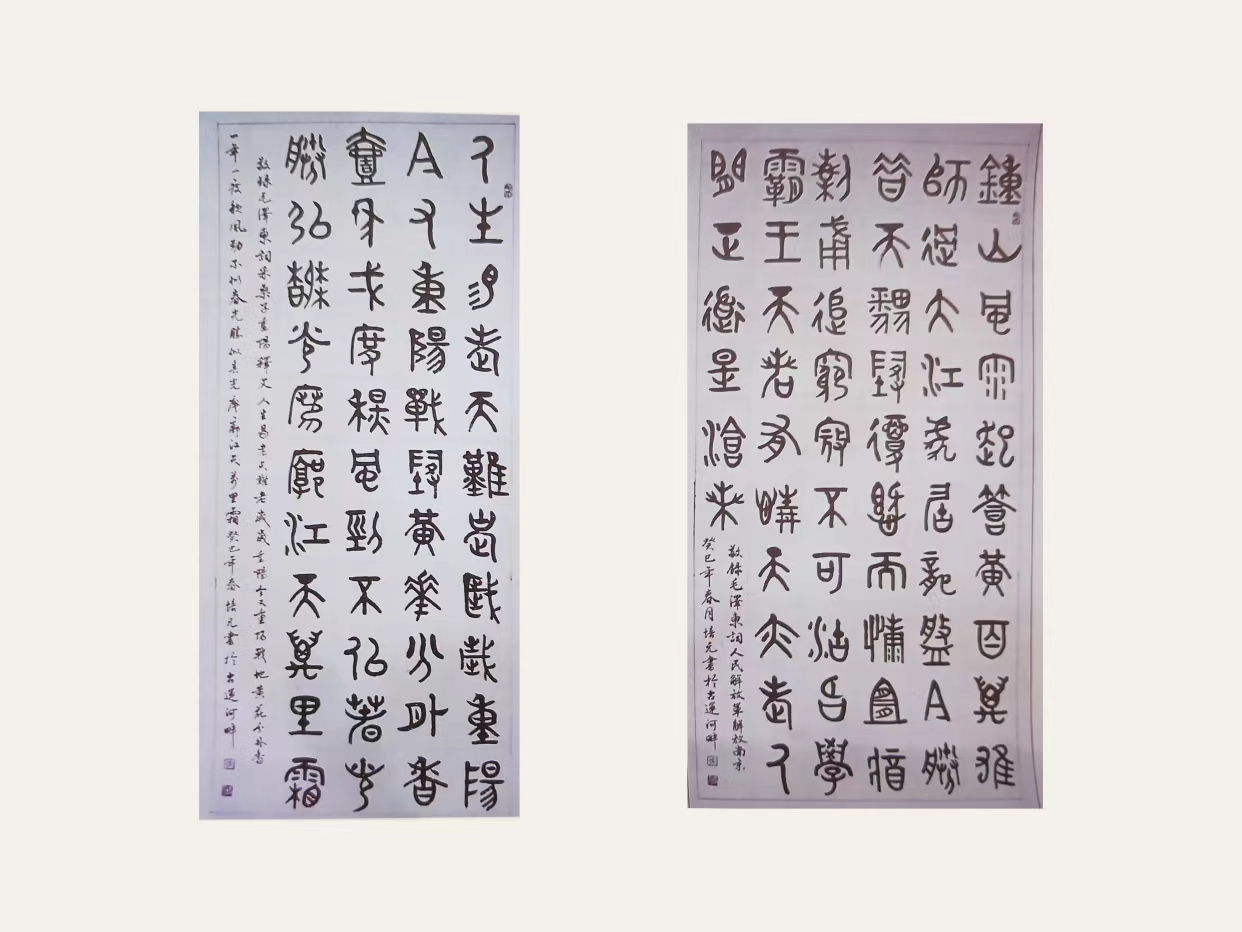 人生易老天難老歲歲重陽
今又重陽戰地黃花分外香
壹年弌度秋風勁不似春光
勝似春光寥廓江天萬里霜
敬錄毛澤東詞采桑子重陽釋文人生易老天難老歲歲重陽今又重陽戰地黃花分外香
一年一度秋風勁不似春光勝似春光廖廓江天萬里霜癸巳年春培元書於古運河畔
鍾山風雨起蒼黃百萬雄
師過大江虎踞龍盤今勝
昔天翻地覆慨而慷宜將
剩勇追窮寇不可沽名學
霸王天若有情天亦老人
間正道是滄桑
敬錄毛澤東詞人民解放軍解放南京
癸巳年春月培元書於古運河畔